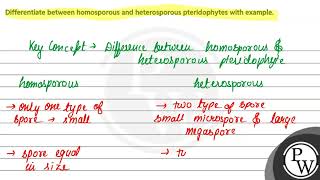 Differentiate between homosporous and heterosporous pteridophytes with example.
Key Concept → Difference between homosporous &
heterosporous pteridophyte
homosporous
heterosporous
→ only one type of
spore → small
→ two type of spore
small microspore & large
megaspore
→ spore equal
in size
→ t
PW